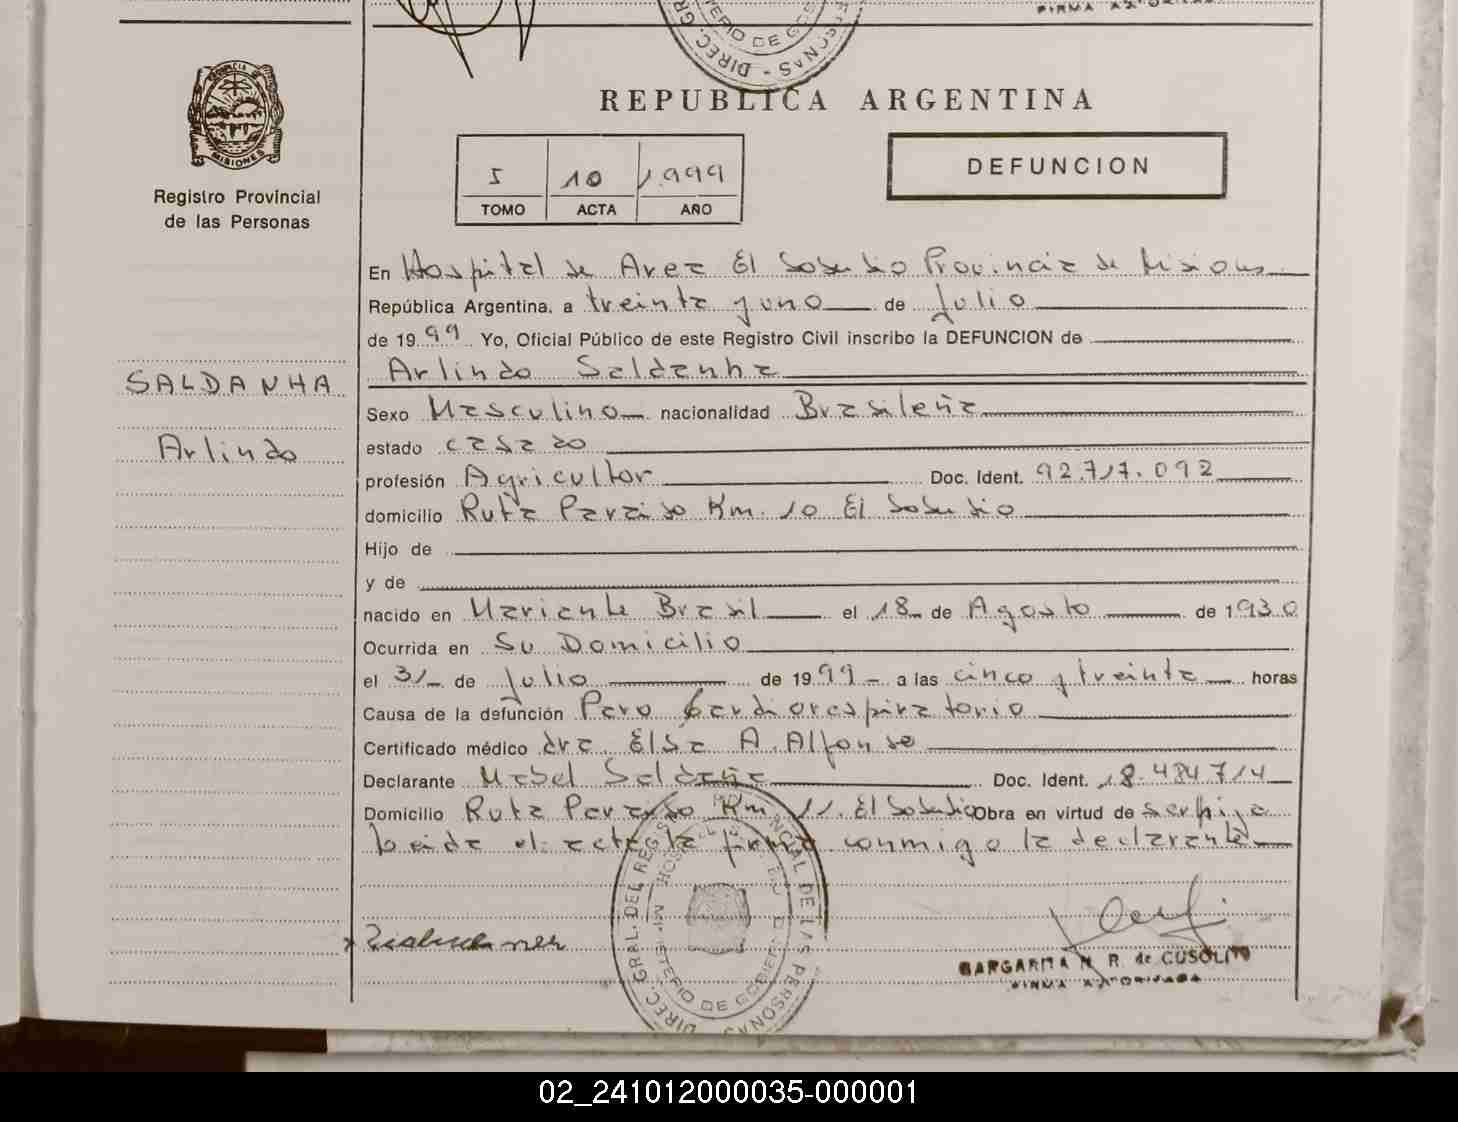 FIRMA AUTORIZADA
DIREC. GRAL.
MISIONES
Registro Provincial
de las Personas
REPUBLICA ARGENTINA
DEFUNCION
I 10 1.999
TOMO ACTA AÑO
En Hospital de Area El Soberbio Provincia de Misiones
República Argentina, a treinta y uno de Julio
de 1999 Yo, Oficial Público de este Registro Civil inscribo la DEFUNCION de
Arlindo Saldanha
SALDANHA
Arlindo
Sexo Masculino nacionalidad Brasileña
estado casado
profesión Agricultor Doc. Ident. 92.717.092
domicilio Ruta Paraiso Km. 10 El Soberbio
Hijo de
y de
nacido en Mariante Brasil el 18 de Agosto de 1930
Ocurrida en Su Domicilio
el 31 de Julio de 1999 a las cinco y treinta horas
Causa de la defunción Paro Cardiorespiratorio
Certificado médico dra. Elsa A. Alfonso
Declarante Mabel Saldaña Doc. Ident. 18.484714
Domicilio Ruta Paraiso Km 11. El Soberbio Obra en virtud de ser hija
Leida el acta la firma conmigo la declarante
DIREC. GRAL. DEL REGISTRO PROVINCIAL DE LAS PERSONAS
MINISTERIO DE GOBIERNO
MARGARITA N. R. de CUSOLITO
FIRMA AUTORIZADA
02_241012000035-000001